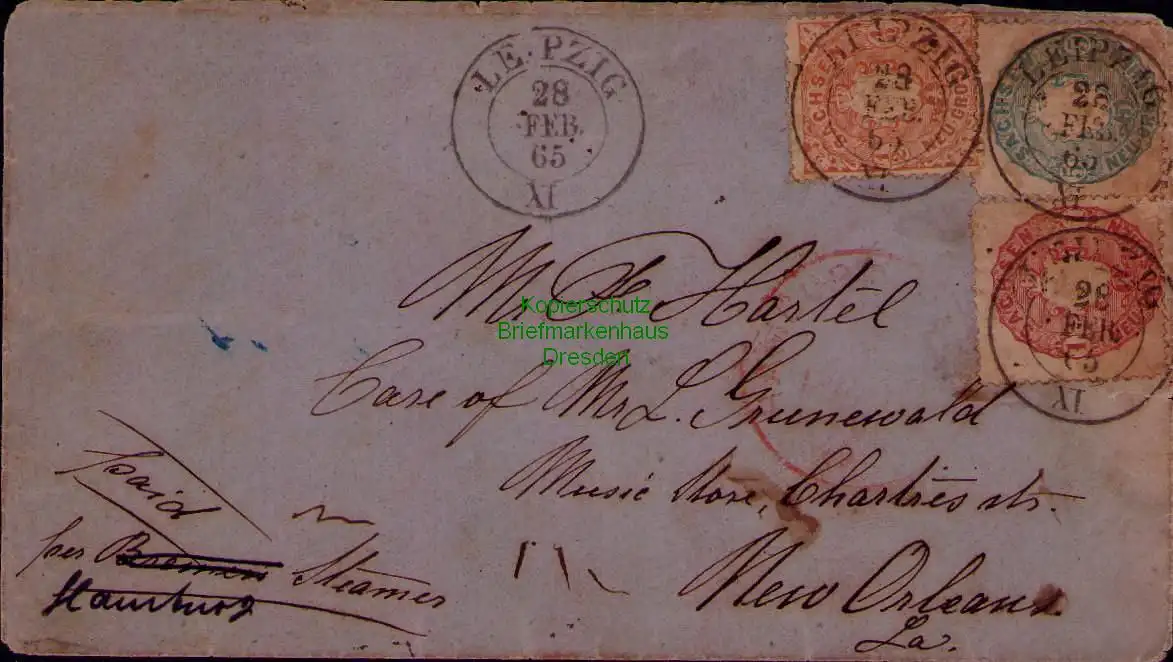 LEIPZIG
28
FEB.
65
XI
SACHSEN NEUGROSCH
LEIPZIG
28
FEB.
65
XI
SACHSEN NEUGR
LEIPZIG
28
FEB.
65
XI
SACHSEN NEUGR
LEIPZIG
28
FEB.
65
XI
Mr. Fr Hartel
Care of Mr L. Grunewald
Music Store, Chartres str.
New Orleans
La.
Paid
per Bremen Steamer
Hamburg
Kopierschutz
Briefmarkenhaus
Dresden